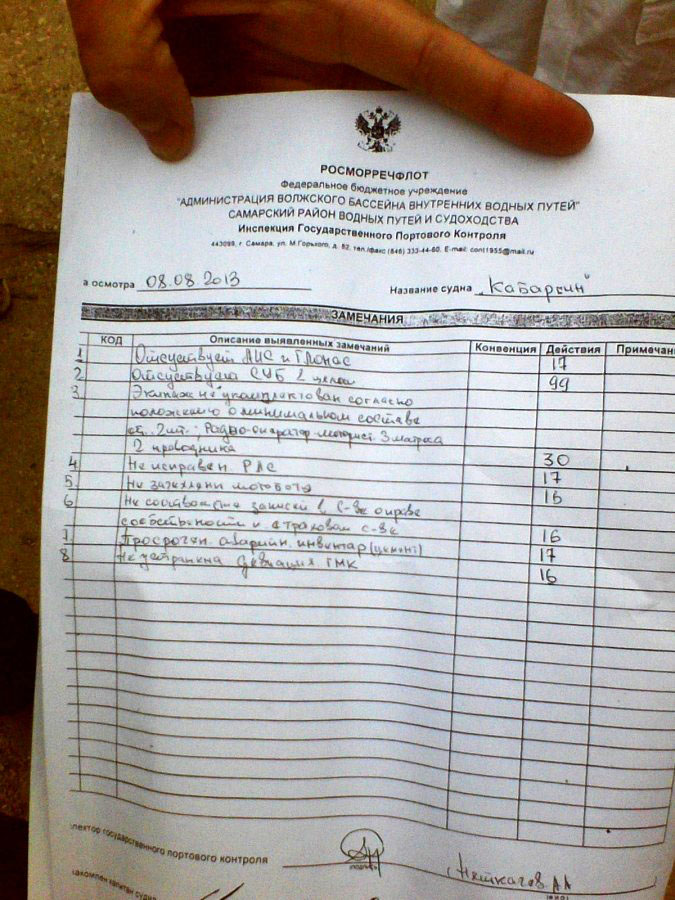 РОСМОРРЕЧФЛОТ
Федеральное бюджетное учреждение
"АДМИНИСТРАЦИЯ ВОЛЖСКОГО БАССЕЙНА ВНУТРЕННИХ ВОДНЫХ ПУТЕЙ"
САМАРСКИЙ РАЙОН ВОДНЫХ ПУТЕЙ И СУДОХОДСТВА
Инспекция Государственного Портового Контроля
443099, г. Самара, ул. М.Горького, д. 82, тел./факс (846) 333-44-60, E-mail: cont1955@mail.ru
а осмотра 08.08.2013 Название судна
ЗАМЕЧАНИЯ
КОД Описание выявленных замечаний Конвенция Действия Примечан
1 Отсутствует АИС и Глонас 17
2 СУБ 99
3 Экипаж не укомплектован согласно
положению о минимальном составе
2 шт.; Радио-оператор моторист 3 матроса
2 проводника 30
4 Не исправен РЛС 17
5 16
6 записей в
собственности и
16
7 Просрочен. аварийн. инвентар (цемент) 17
8 Не устранена девиация ГМК 16
пектор государственного портового контроля
(подпись)
(ФИО)
накомлен капитан судна